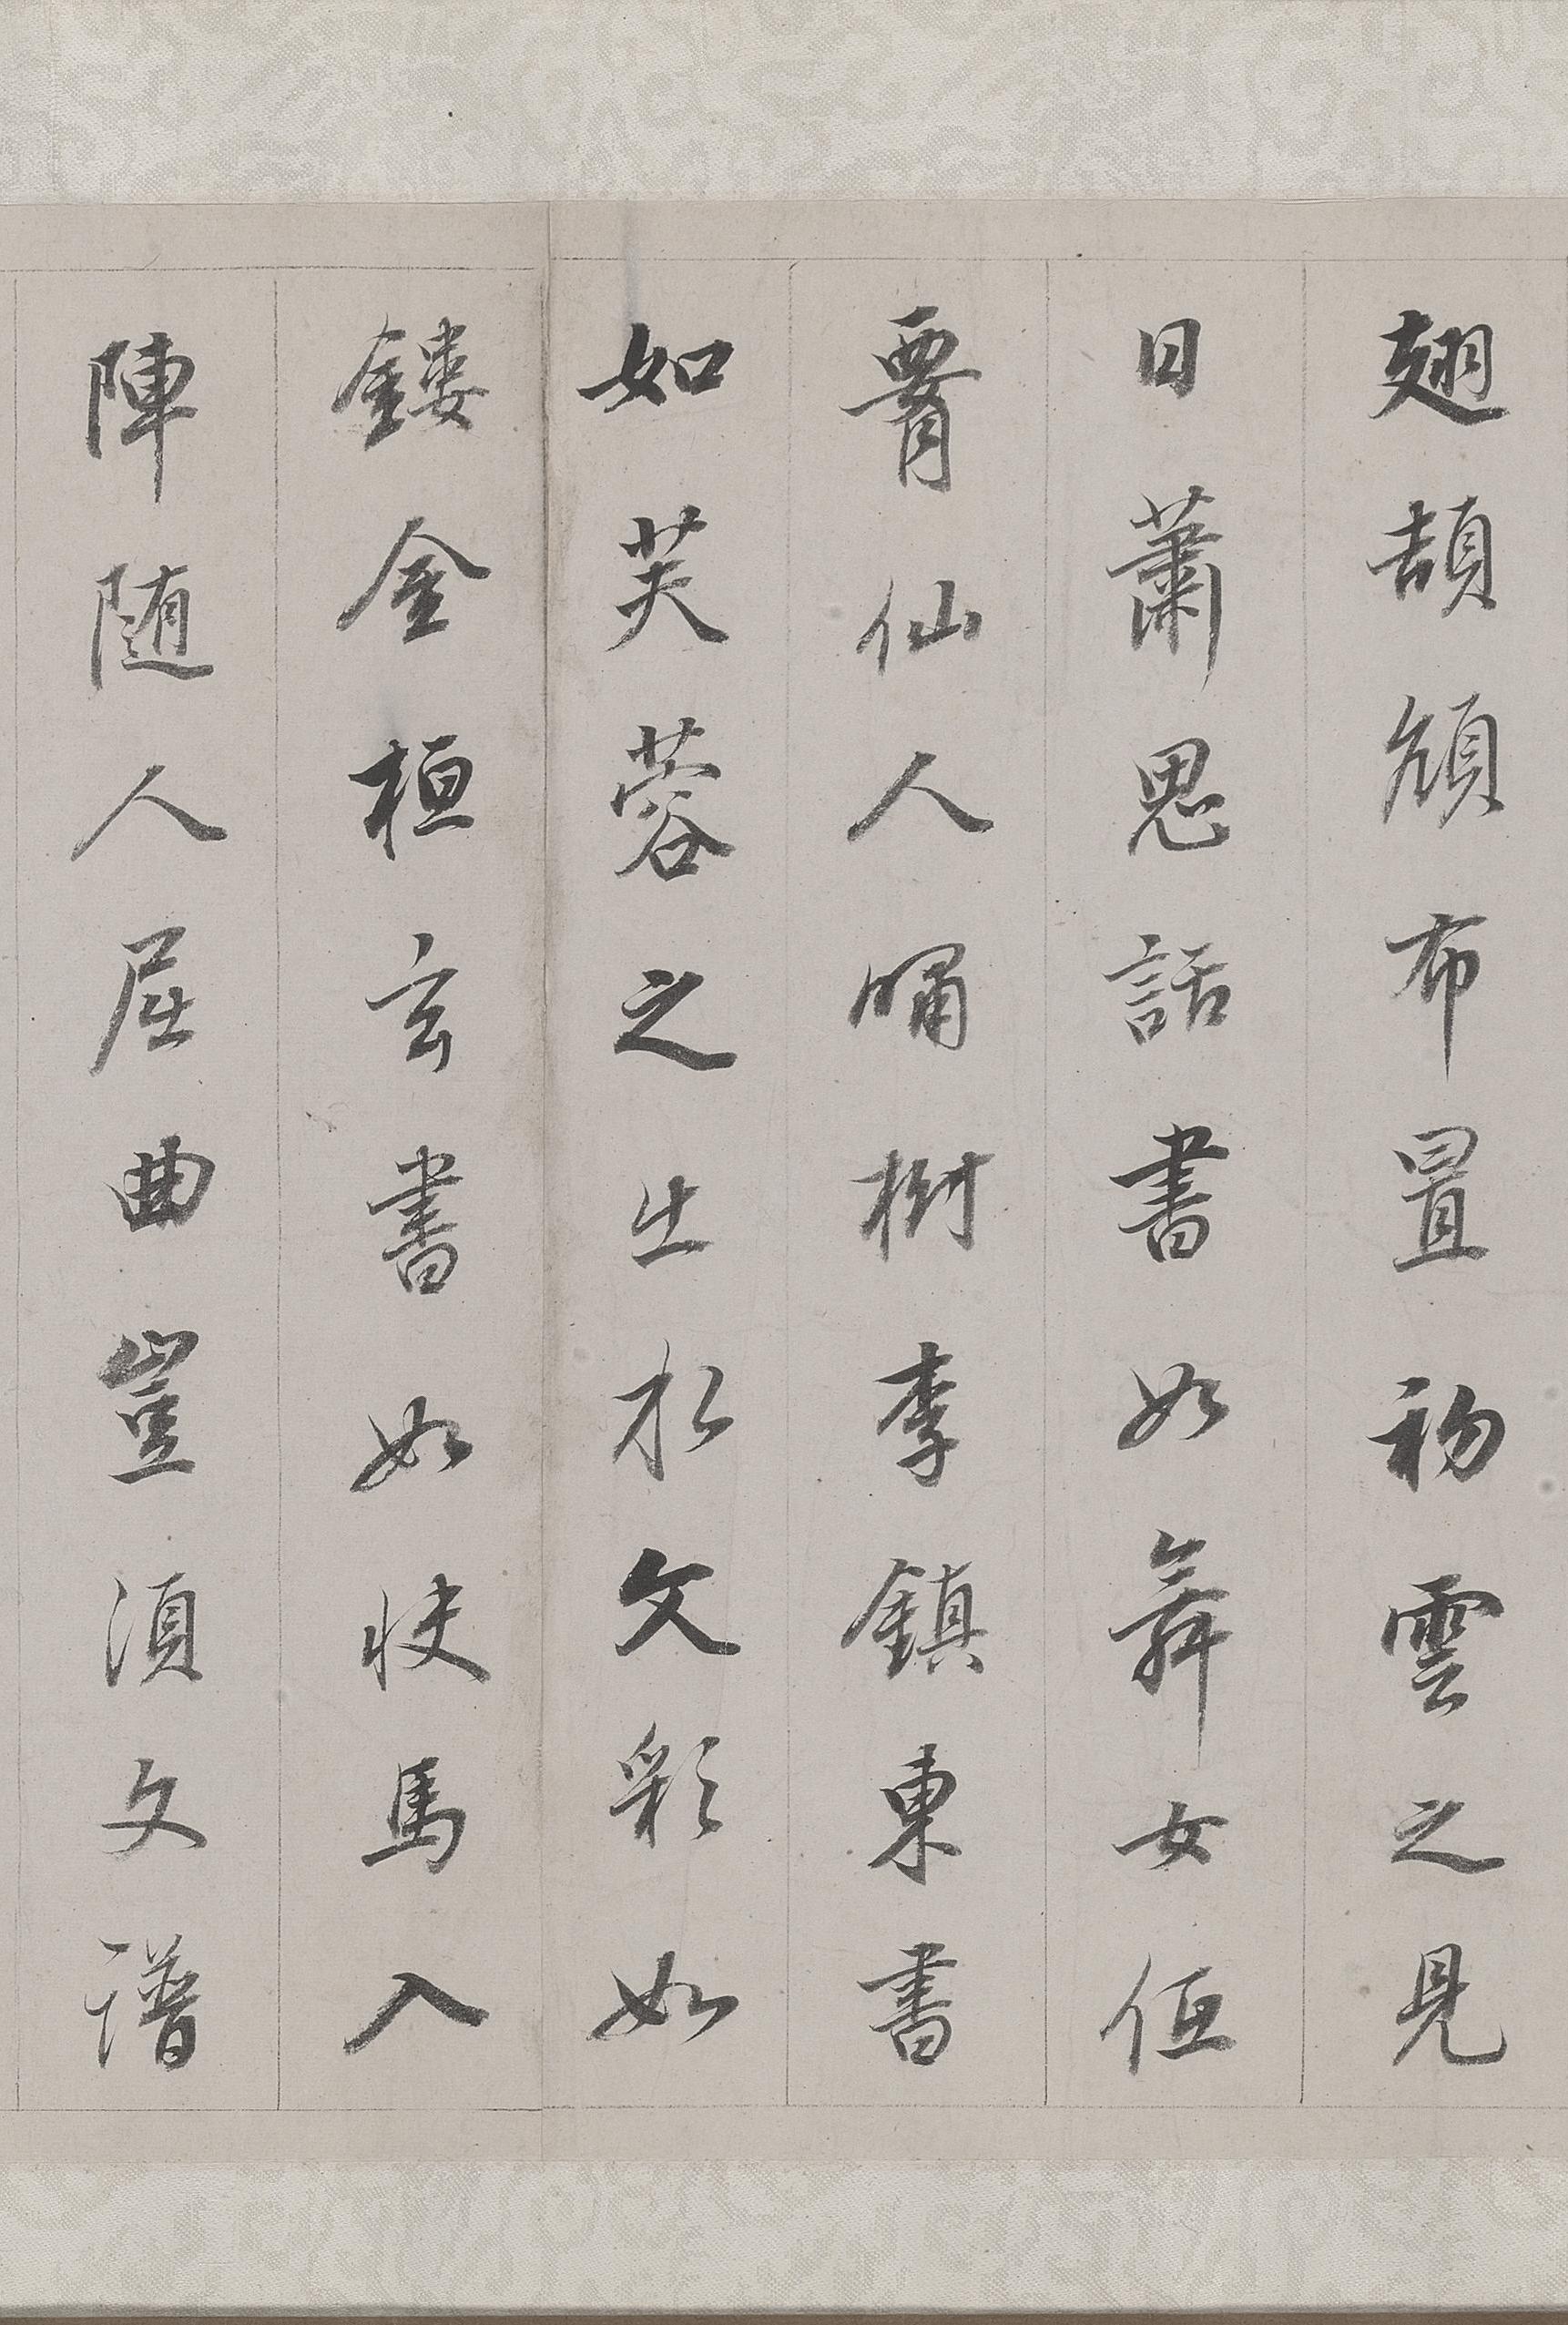 翅頡頏布置初雲之見
日蕭思話書如舞女低
腰仙人嘯樹李鎮東書
如芙蓉之出水文彩如
鏤金桓玄書如快馬入
陣随人屈曲豈須文譜